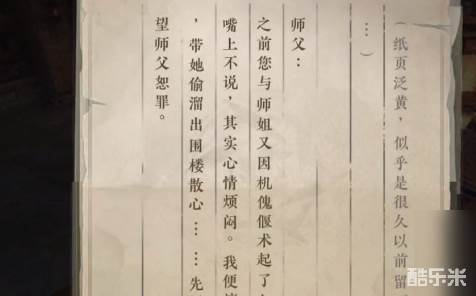 （纸页泛黄，似乎是很久以前留
…）
师父：
之前您与师姐又因机傀偃术起了
嘴上不说，其实心情烦闷。我便
，带她偷溜出围楼散心……先
望师父恕罪。
酷乐米